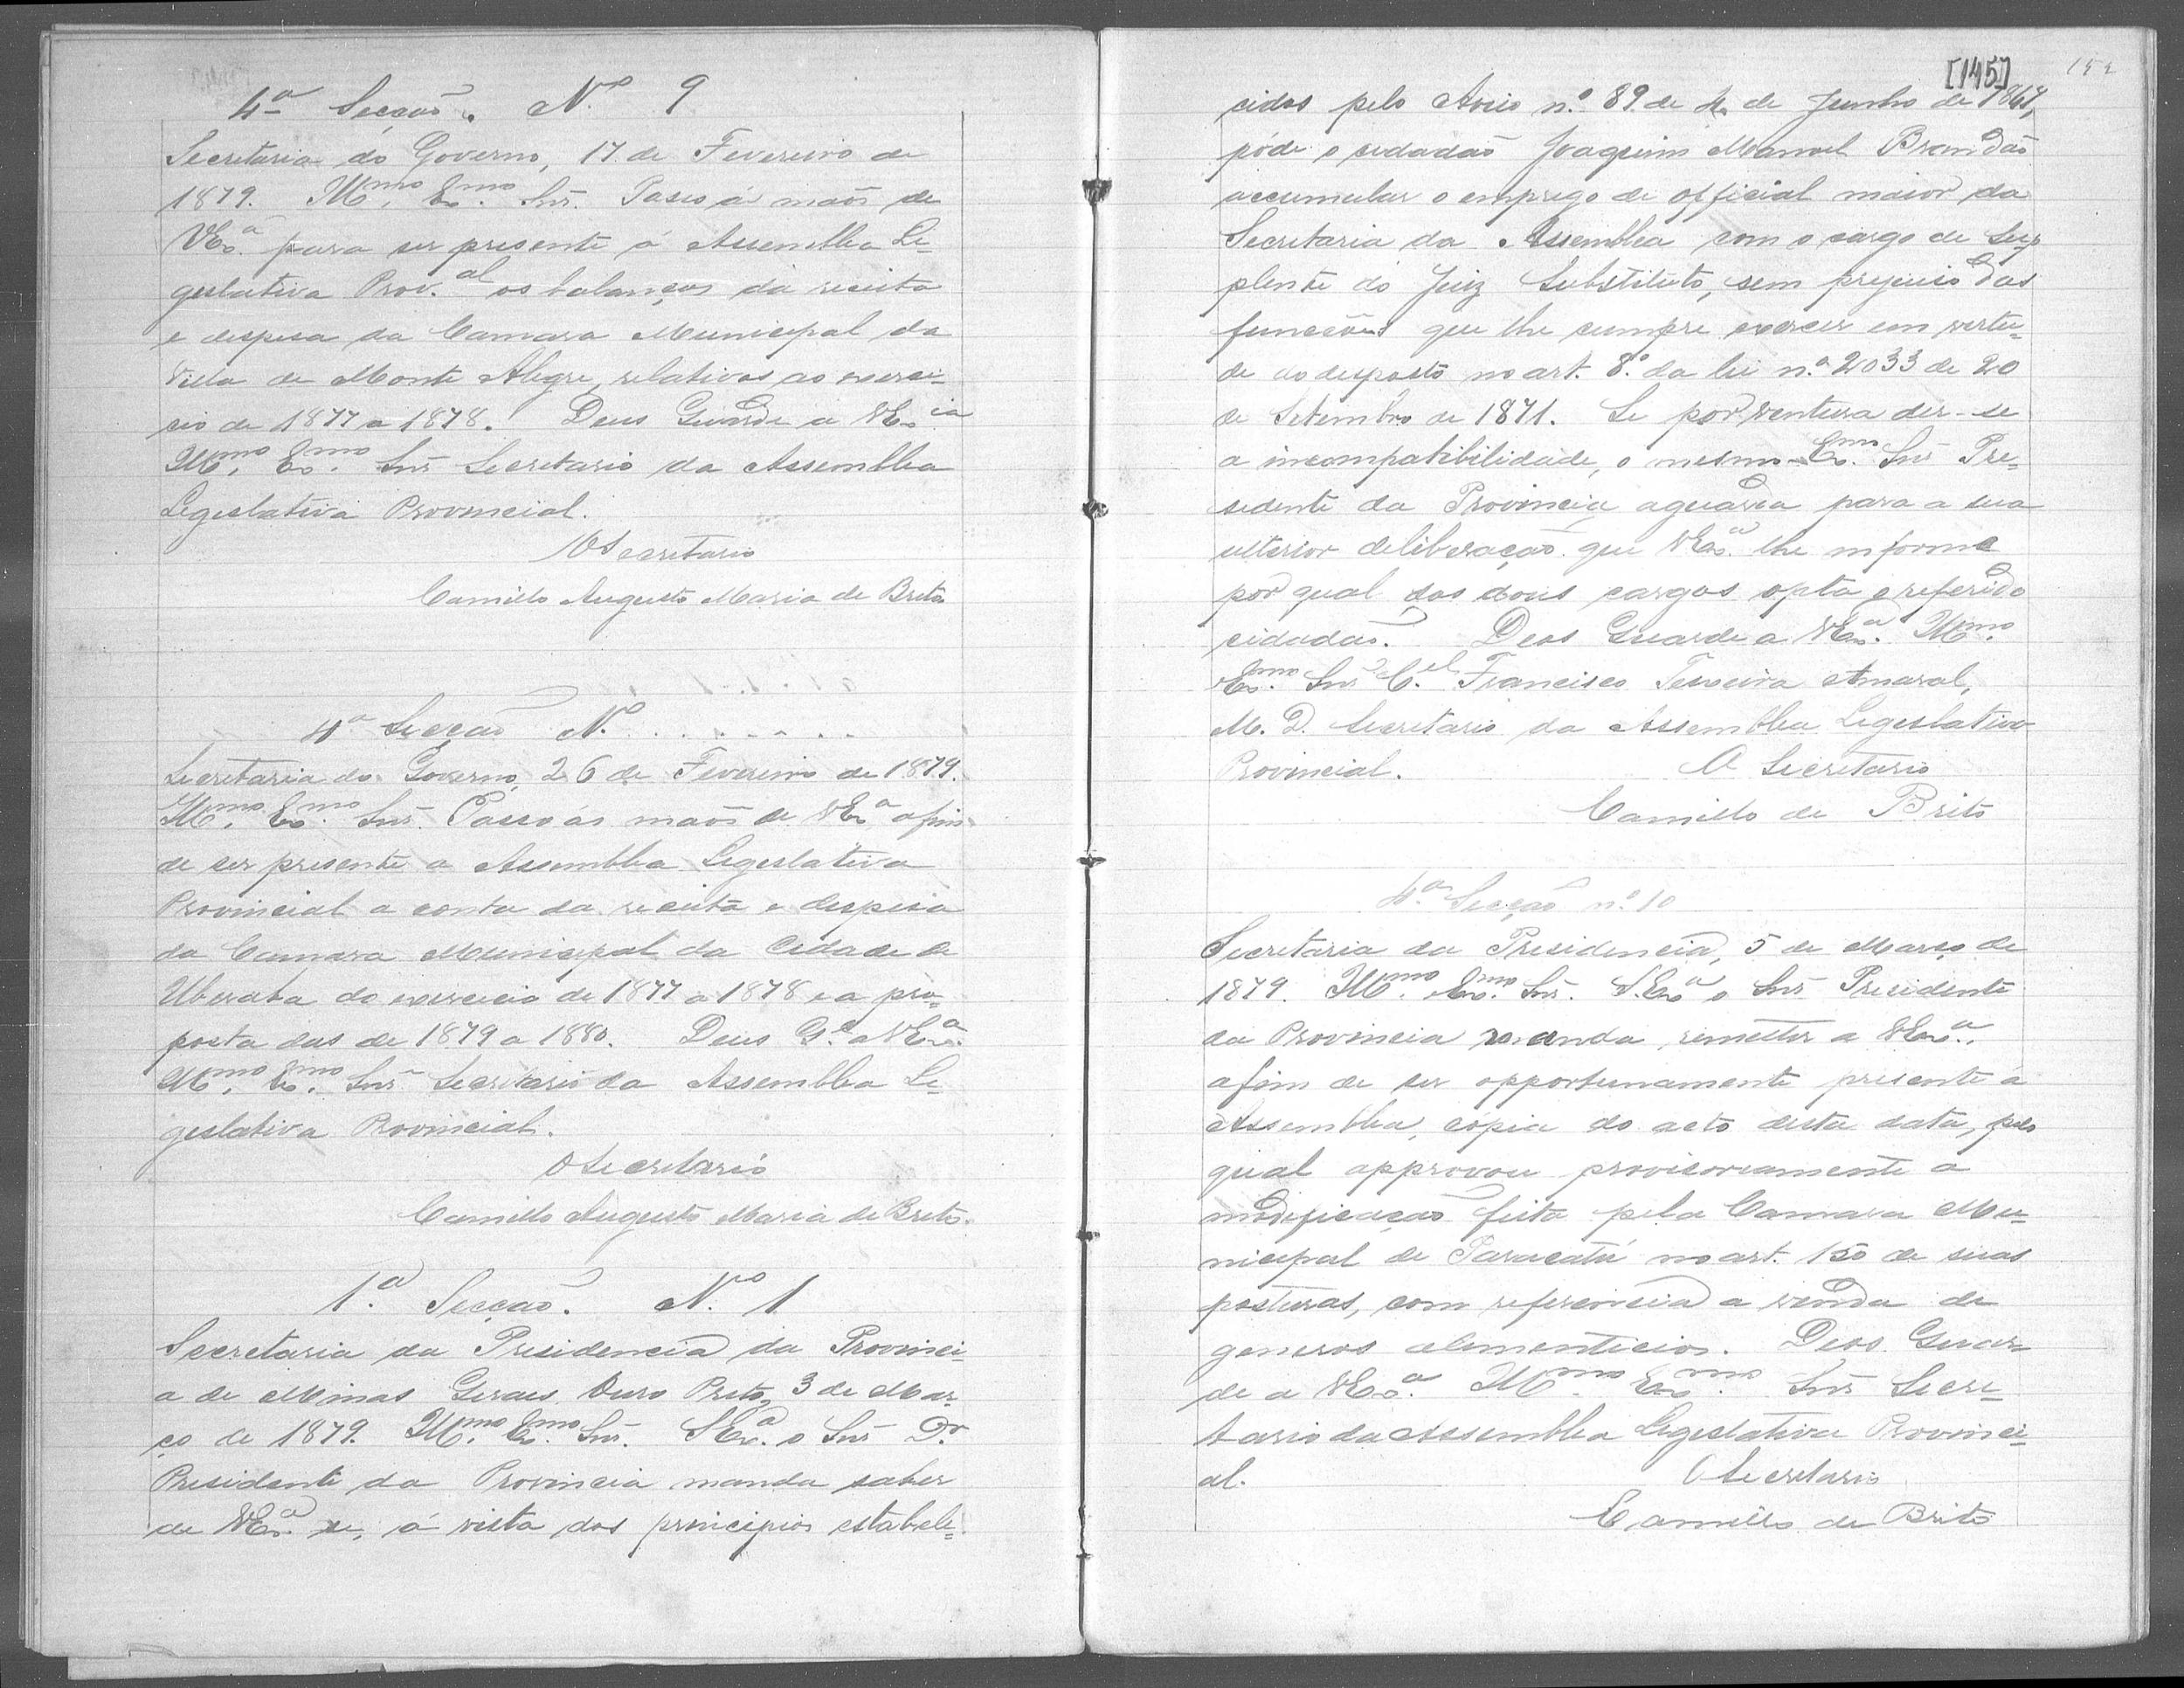 4ª Secção. Nº 9
Secretaria do Governo, 17 de Fevereiro de
1879. Illmo. Exmo. Snr. Passo á maõs de
VExª. para ser presente á Assemblea Le=
geslativa Prov.al os balanços da receita
e despesa da Camara Municipal da
Villa de Monte Alegre, relativos ao exerci=
cio de 1877 a 1878. Deus Guarde a VExcia
Illmo. Exmo. Snr Secretario da Assemblea
Legeslativa Provincial.
O Secretario
Camillo Augusto Maria de Brito
4ª Secção Nº . . . . . . .
Secretaria do Governo, 26 de Fevereiro de 1879.
Illmo. Exmo. Snr. Passo ás maõs de VExª afim
de ser presente a Assemblea Legeslativa
Provincial a conta da receita e despesa
da Camara Municipal da Cidade de
Uberaba do exercicio de 1877 a 1878 e a pro=
posta das de 1879 a 1880. Deus G.e a VExª.
Illmo. Exmo. Snr Secretario da Assemblea Le=
geslativa Provincial.
O Secretario
Camillo Augusto Maria de Brito.
1ª. Secção. Nº 1
Secretaria da Presidencia da Provinci=
a de Minas Geraes Ouro Preto, 3 de Mar=
ço de 1879. Illmo. Exmo. Snr. SExª. o Snr Dr.
Presidente da Provincia manda saber
de VExª. se, á vista dos principios estabele=
[145]
cidos pelo Aviso n.º 89 de 4 de Junho de 1847,
póde o cidadaõ Joaquim Manoel Brandão
accumular o emprego de official maior da
Secretaria da Assemblea com o cargo de Sup
plente do Juiz Substituto, sem prejuiso das
funcções que lhe cumpre exercer em vertu=
de do desposto no art. 8.º da lei n.º 2033 de 20
de Setembro de 1871. Se por ventura der-se
a incompatibilidade, o mesmo Exmo. Snr Pre=
sedente da Provincia aguarda para a sua
ulterior deliberação que VExª. lhe informe
por qual dos dous cargos opta o referido
cidadaõ. Deos Guarde a VExª. Illmo.
Exmo. Snr C.el Francisco Teixeira Amaral,
M. D. Secretario da Assemblea Legeslativa
Provincial. O Secretario
Camillo de Brito
4ª Secção n.º 10
Secretaria da Presidencia, 5 de Março de
1879. Illmo. Exmo. Snr. S.Exª o Snr Presidente
da Provincia manda remetter a VExª.,
afim de ser opportunamente presente á
Assemblea, cópia do acto desta data, pelo
qual approvou provisoriamente a
modificação feita pela Camara Mu=
nicipal de Paracatú no art. 150 de suas
posturas, com referencia a venda de
generos alementicios. Deos Guar=
de a VExª. Illmo. Exmo. Snr Secre=
tario da Assemblea Legeslativa Provinci=
al. O Secretario
Camillo de Brito